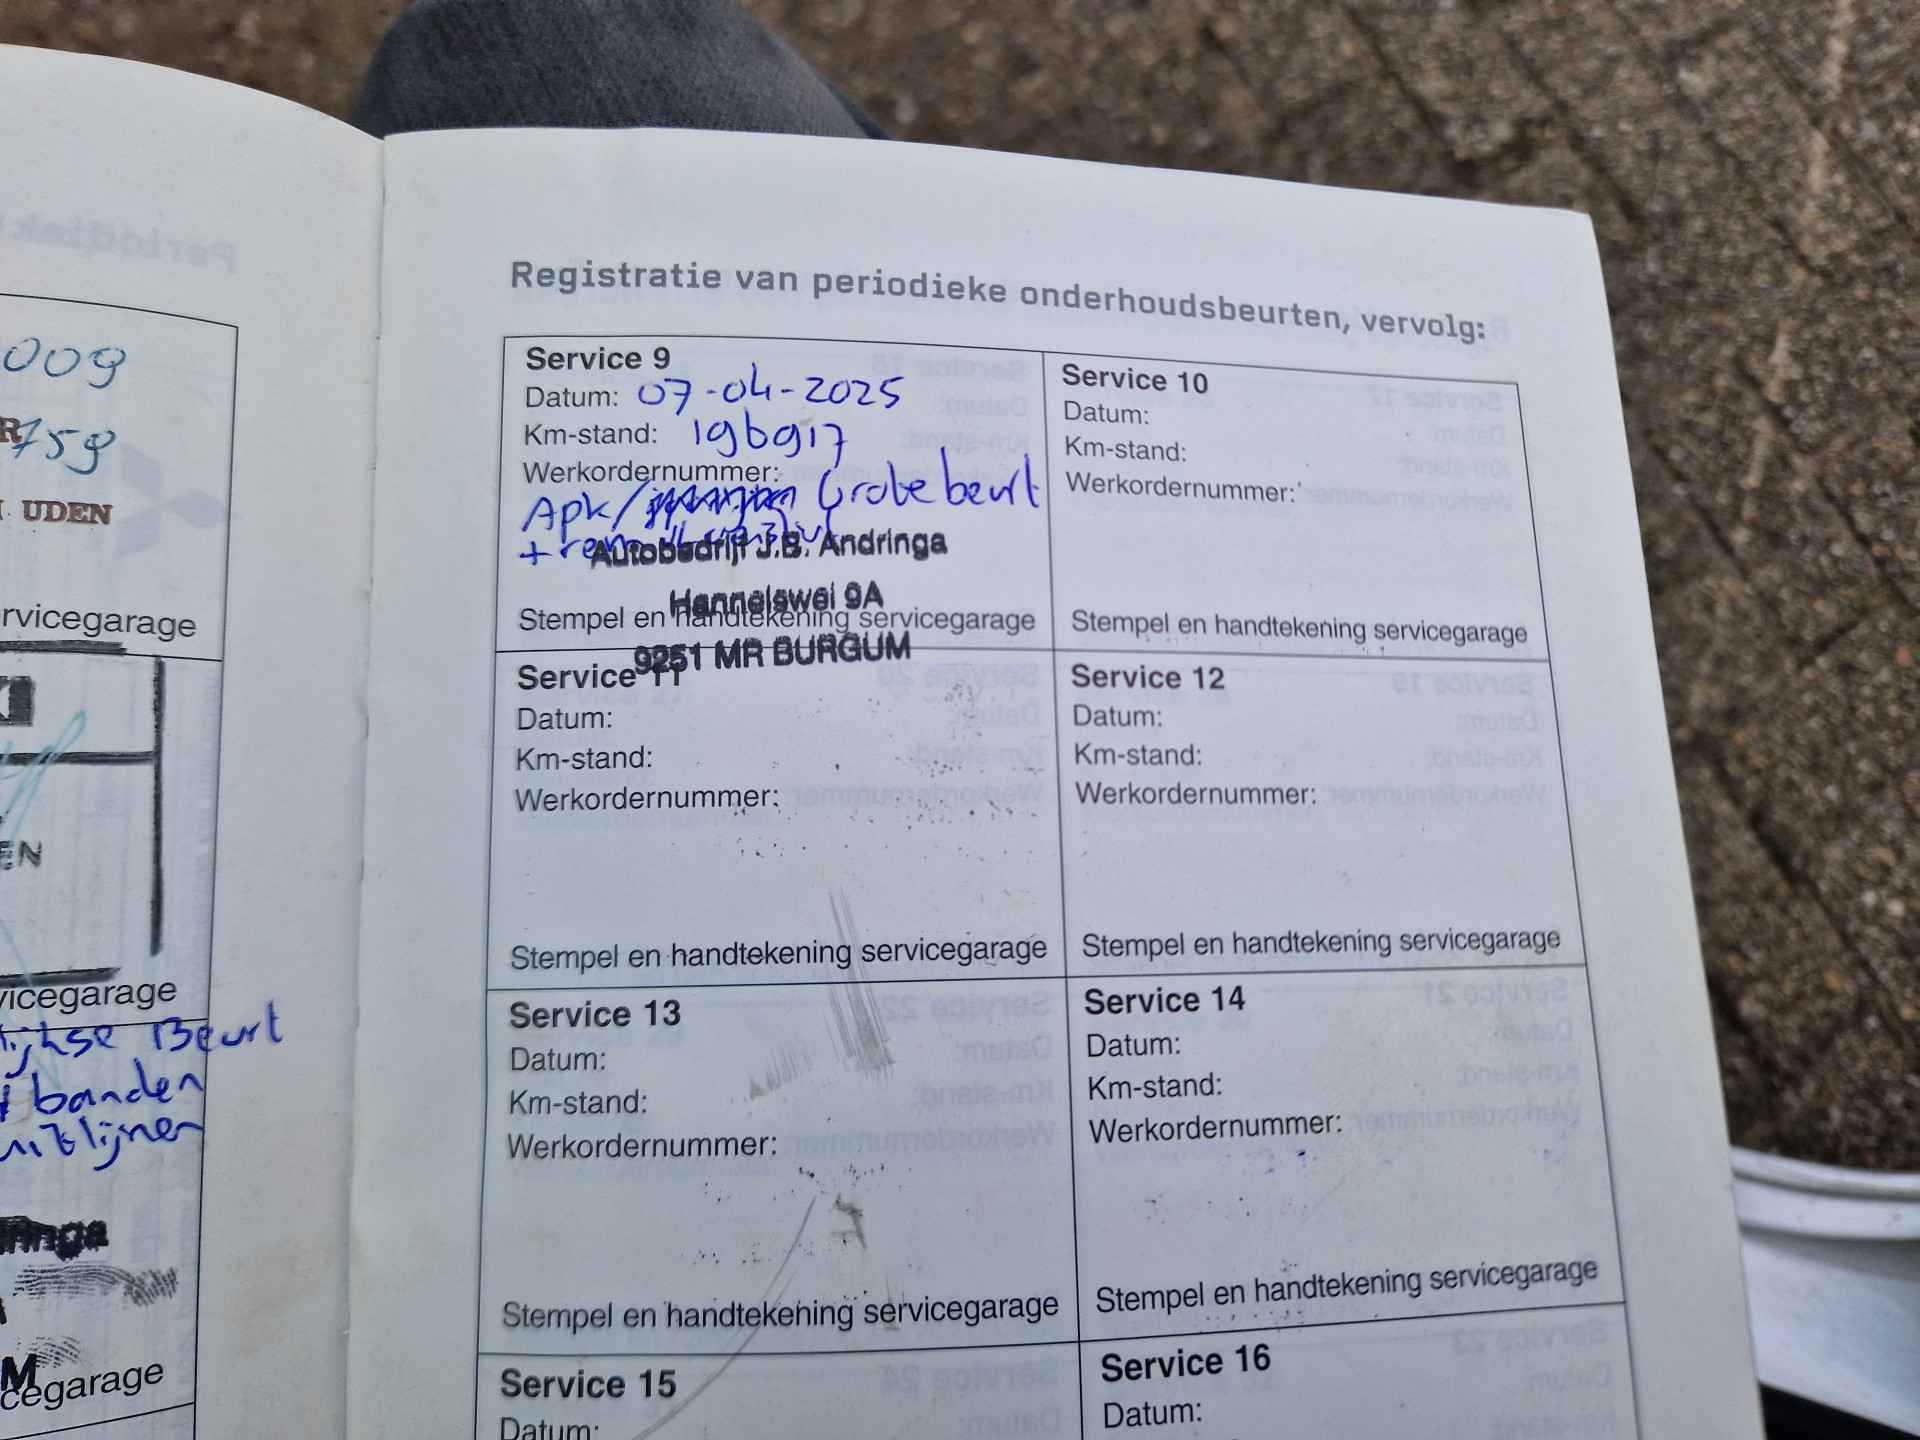 009
R 759
UDEN
rvicegarage
EN
vicegarage
lijkse Beurt
banden
uitlijnen
inga
M
cegarage
Registratie van periodieke onderhoudsbeurten, vervolg:
Service 9
Datum: 07-04-2025
Km-stand: 196917
Werkordernummer:
Apk/ Grote beurt
+ rem
Autobedrijf J.B. Andringa
Hannelswei 9A
Stempel en handtekening servicegarage
9251 MR BURGUM
Service 10
Datum:
Km-stand:
Werkordernummer:
Stempel en handtekening servicegarage
Service 11
Datum:
Km-stand:
Werkordernummer:
Stempel en handtekening servicegarage
Service 12
Datum:
Km-stand:
Werkordernummer:
Stempel en handtekening servicegarage
Service 13
Datum:
Km-stand:
Werkordernummer:
Stempel en handtekening servicegarage
Service 14
Datum:
Km-stand:
Werkordernummer:
Stempel en handtekening servicegarage
Service 15
Datum:
Service 16
Datum: